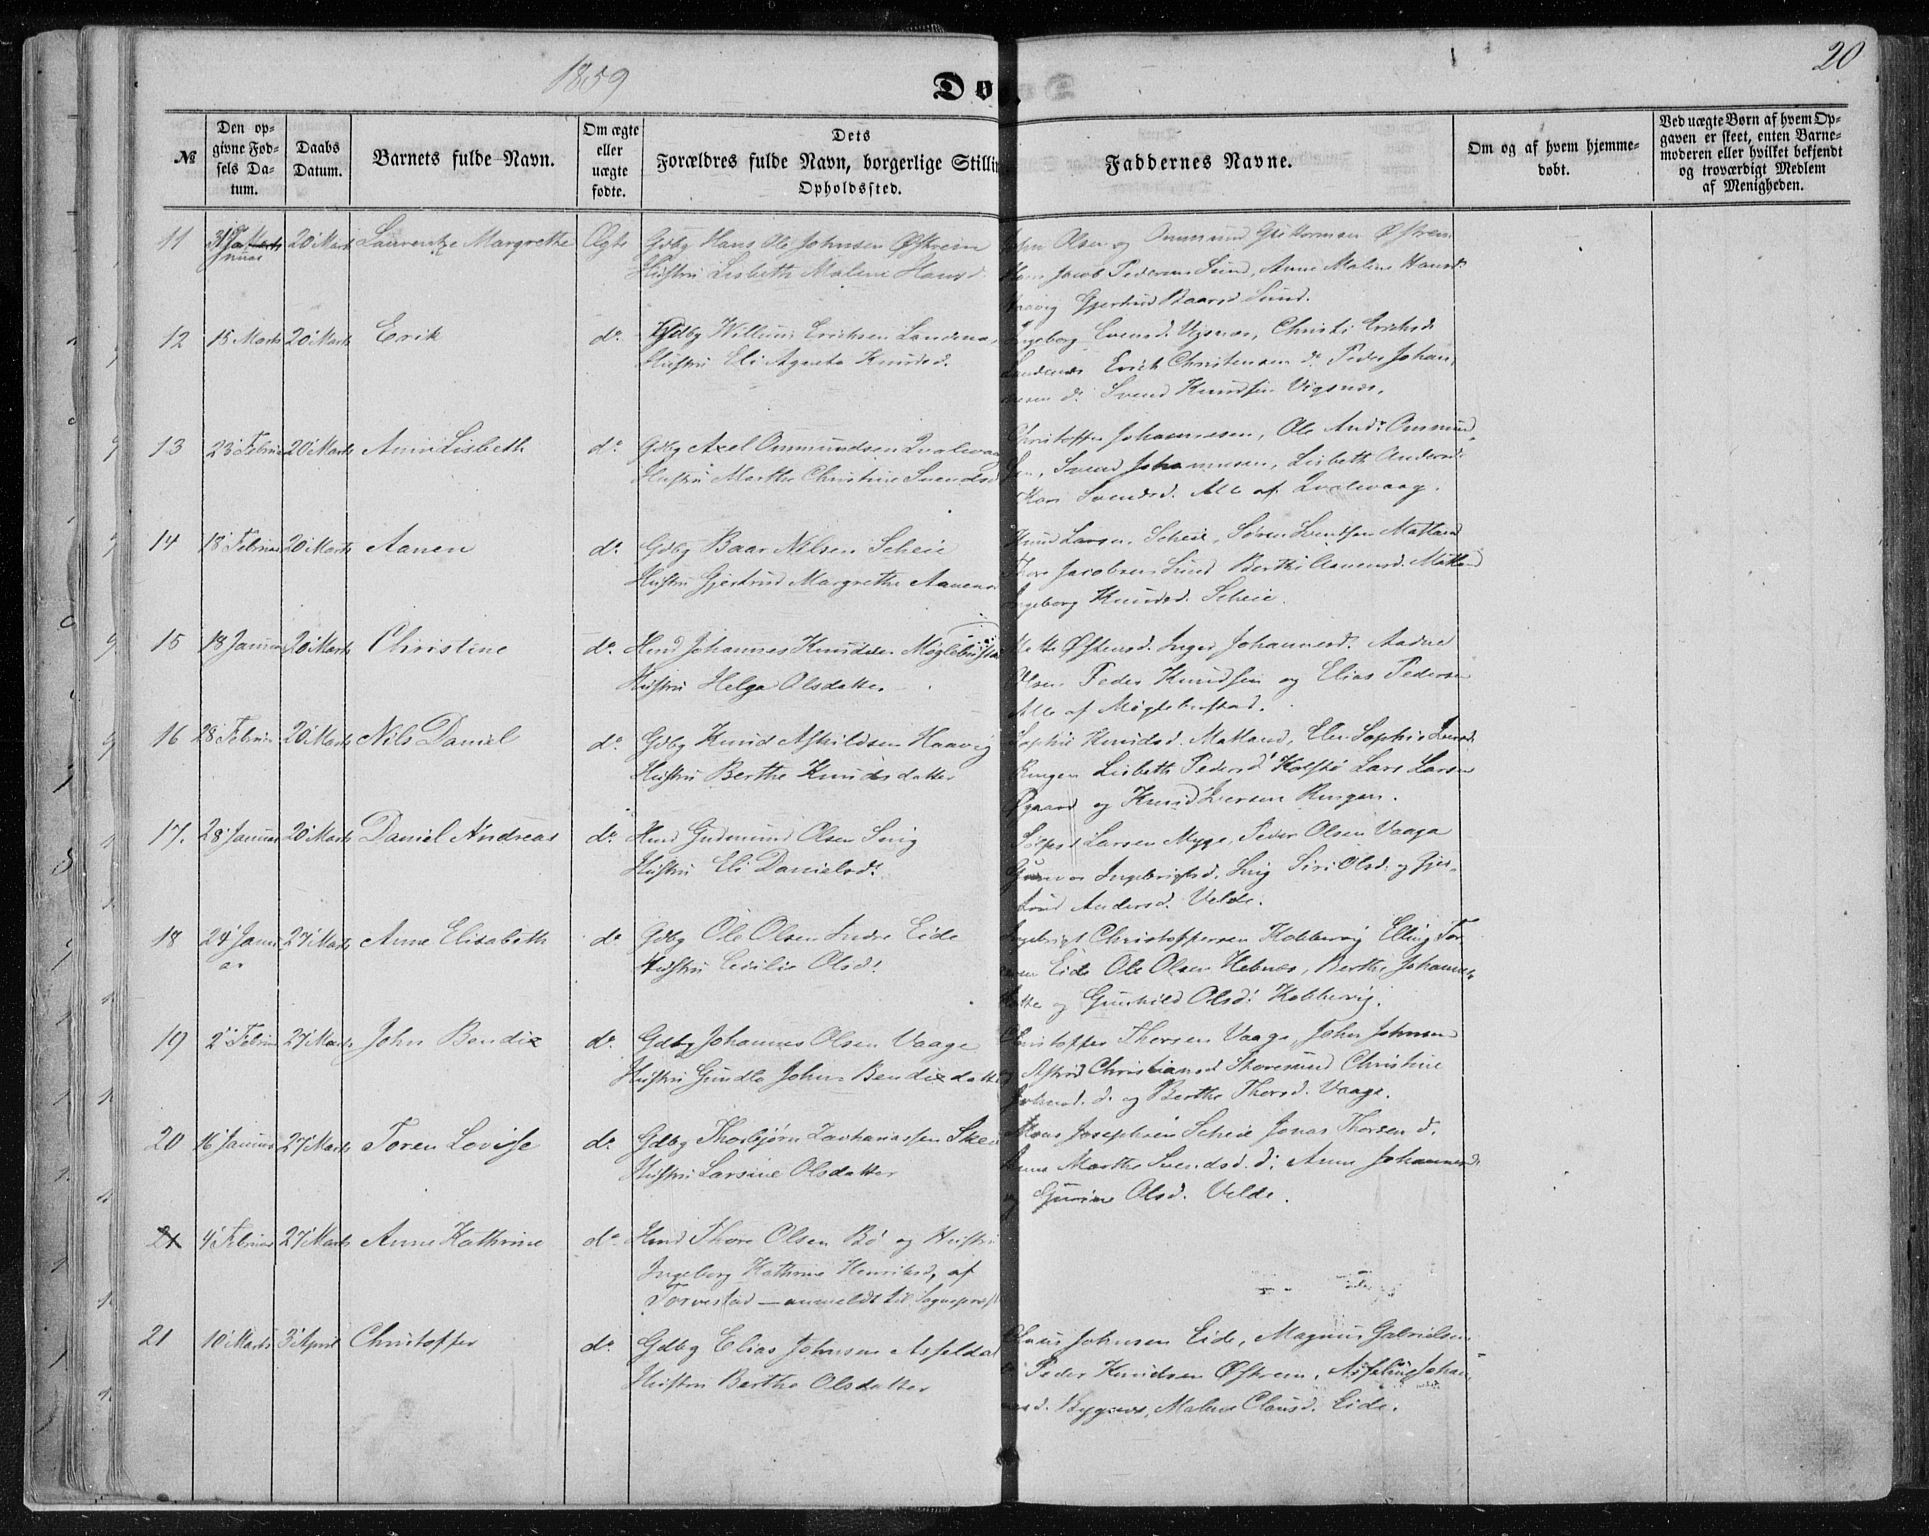 1859
20
Døb
№
Den op-
givne Fød-
sels Da-
tum.
Daabs
Datum.
Barnets fulde Navn.
Om ægte
eller
uægte
fødte.
Dets
Forældres fulde Navn, borgerlige Stilli
Opholdssted.
Faddernes Navne.
Om og af hvem hjemme-
døbt.
Ved uægte Børn af hvem Op-
gaven er skeet, enten Barne-
moderen eller hvilket bekjendt
og troværdigt Medlem
af Menigheden.
11 31 Januar 20 Marts Laurentze Margrethe Ægte Gdbg Hans Ole Johnsen Østreim
Hustru Lisbeth Malene Hansd
Olsen og Ommund Guttormsen Østrem
Jacob Pedersen Sund, Anne Malene Hansd.
Gjertrud Baarsd Sund.
12 15 Marts 20 Marts Erik do Gdbg Willum Erichsen Landenæs
Hustru Eli Agnete Knudsd.
Ingeborg Svensd. Vigsnæs, Christi Erichsd.
Landenæs Erich Christensen do Peder Johan-
nesen do Svend Knudsen Vigsnæs.
13 23 Februar 20 Marts Anne Lisbeth do Gdbg Axel Ommundsen Qvalevaag
Hustru Marthe Christine Svendsd
Christoffer Johannesen, Ole Andr. Ommund-
sen, Svend Johannesen, Lisbeth Andersd.
Kari Svendsd. Alle af Qvalevaag.
14 18 Februar 20 Marts Aanen do Gdbg Baar Nilsen Scheie
Hustru Gjertrud Margrethe Aanens
Knud Larsen Scheie, Søren Svendsen Matland
Thore Jacobsen Sund Berthe Aanensd. Matland
Ingeborg Knudsd. Scheie.
15 18 Januar 20 Marts Christine do Hmd Johannes Knudsen Møglebustad
Hustru Helga Olsdatter
Mette Østensd. Inger Johannesd. Aadne
Olsen Peder Knudsen og Elias Pedersen
Alle af Møglebustad.
16 28 Februar 20 Marts Nils Daniel do Gdbg Knud Askildsen Haavig
Hustru Berthe Knudsdatter
Sophie Knudsd. Matland, Elen Sophie Iversd.
Ringen Lisbeth Pedersd Kolstø Lars Larsen
Øgaard og Knud Iversen Ringen.
17. 28 Januar 20 Marts Daniel Andreas do Hmd Gudmund Olsen Snig
Hustru Eli Danielsd.
Larsen Mygge, Peder Olsen Vaaga
Ingebrigtsd. Snig Siri Olsd. og Gjer-
trud Andersd. Velde.
18 24 Janu-
ar 27 Marts Anne Elisabeth do Gdbg Ole Olsen Indre Eide
Hustru Cecilie Olsd.
Ingebrigt Christoffersen Kobbervig Elling Tor-
Eide Ole Olsen Hebnes, Berthe Johannes-
datter og Gunhild Olsd. Kobbervig.
19 2 Februar 27 Marts John Bendix do Gdbg Johannes Olsen Vaage
Hustru Gundla Johns Bendixdatter
Christoffer Thorsen Vaage, John Johnsen
Astrid Christiansd Storesund Christine
Johnsd. do og Berthe Thorsd. Vaage.
20 16 Januar 27 Marts Toren Lovise do Gdbg Thorbjørn Zachariassen Skeie
Hustru Larsine Olsdatter
Mons Josephsen Scheie Jonas Thorsen do
Anne Marthe Svendsd. do, Anne Johannesd.
og Gurine Olsd. Velde.
21 4 Februar 27 Marts Anne Kathrine do Hmd Thore Olsen Bø og Hustru
Ingeborg Kathrine Henriksd, af
Torvestad — anmeldt til Sognepræst
21 10 Marts 3 April Christoffer do Gdbg Elias Johnsen Aspeldal
Hustru Berthe Olsdatter
Claus Johnsen Eide, Magnus Gabrielsen
Peder Knudsen Østrem, Johan-
nesd. Bygnes, Malene Clausd. Eide.